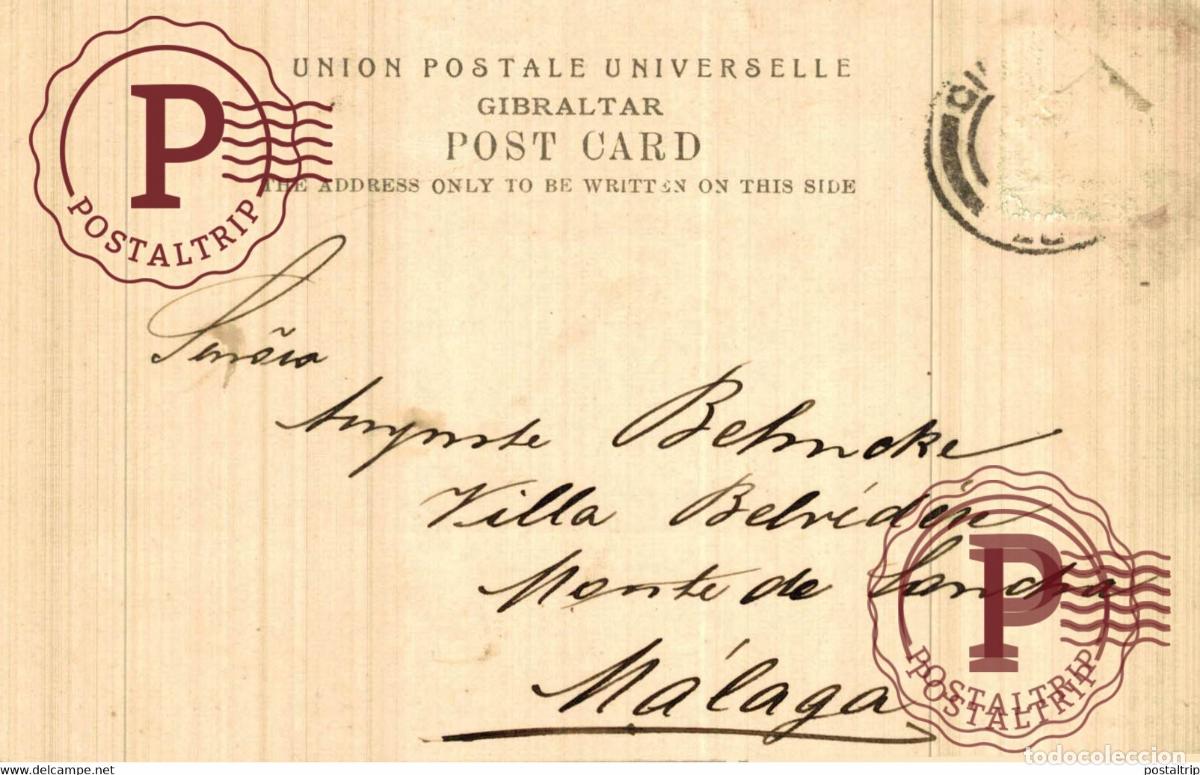 UNION POSTALE UNIVERSELLE
GIBRALTAR
POST CARD
THE ADDRESS ONLY TO BE WRITTEN ON THIS SIDE
P
POSTALTRIP
Señora
Auguste Behncke
Villa
Monte de Sancha
Málaga
P
POSTALTRIP
POSTALTRIP
todocoleccion
www.delcampe.net
postaltrip